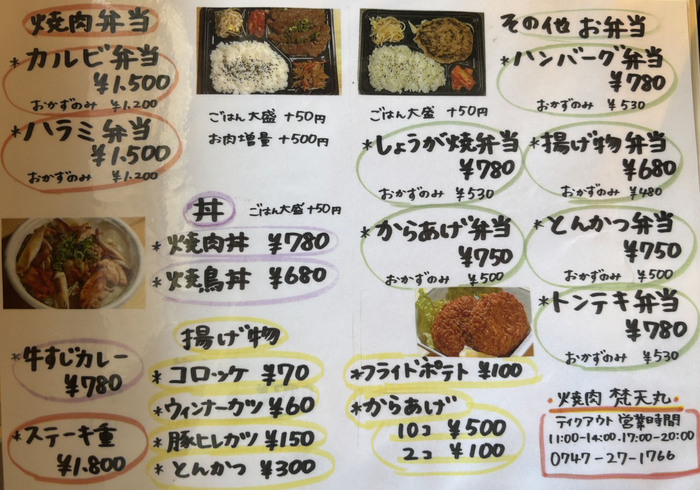 焼肉弁当
*カルビ弁当
¥1.500
おかずのみ ¥1.200
*ハラミ弁当
¥1.500
おかずのみ ¥1.200
ごはん大盛 +50円
お肉増量 +500円
丼 ごはん大盛+50円
*焼肉丼 ¥780
*焼鳥丼 ¥680
*牛すじカレー
¥780
*ステーキ重
¥1.800
揚げ物
*コロッケ ¥70
*ウィンナーカツ ¥60
*豚ヒレカツ ¥150
*とんかつ ¥300
その他 お弁当
*ハンバーグ弁当
¥780
おかずのみ ¥530
ごはん大盛 +50円
*しょうが焼弁当
¥780
おかずのみ ¥530
*揚げ物弁当
¥680
おかずのみ ¥480
*からあげ弁当
¥750
おかずのみ ¥500
*とんかつ弁当
¥750
おかずのみ ¥500
*トンテキ弁当
¥780
おかずのみ ¥530
*フライドポテト ¥100
*からあげ
10コ ¥500
2コ ¥100
・焼肉 梵天丸・
テイクアウト営業時間
11:00-14:00.17:00-20:00
0747-27-1766